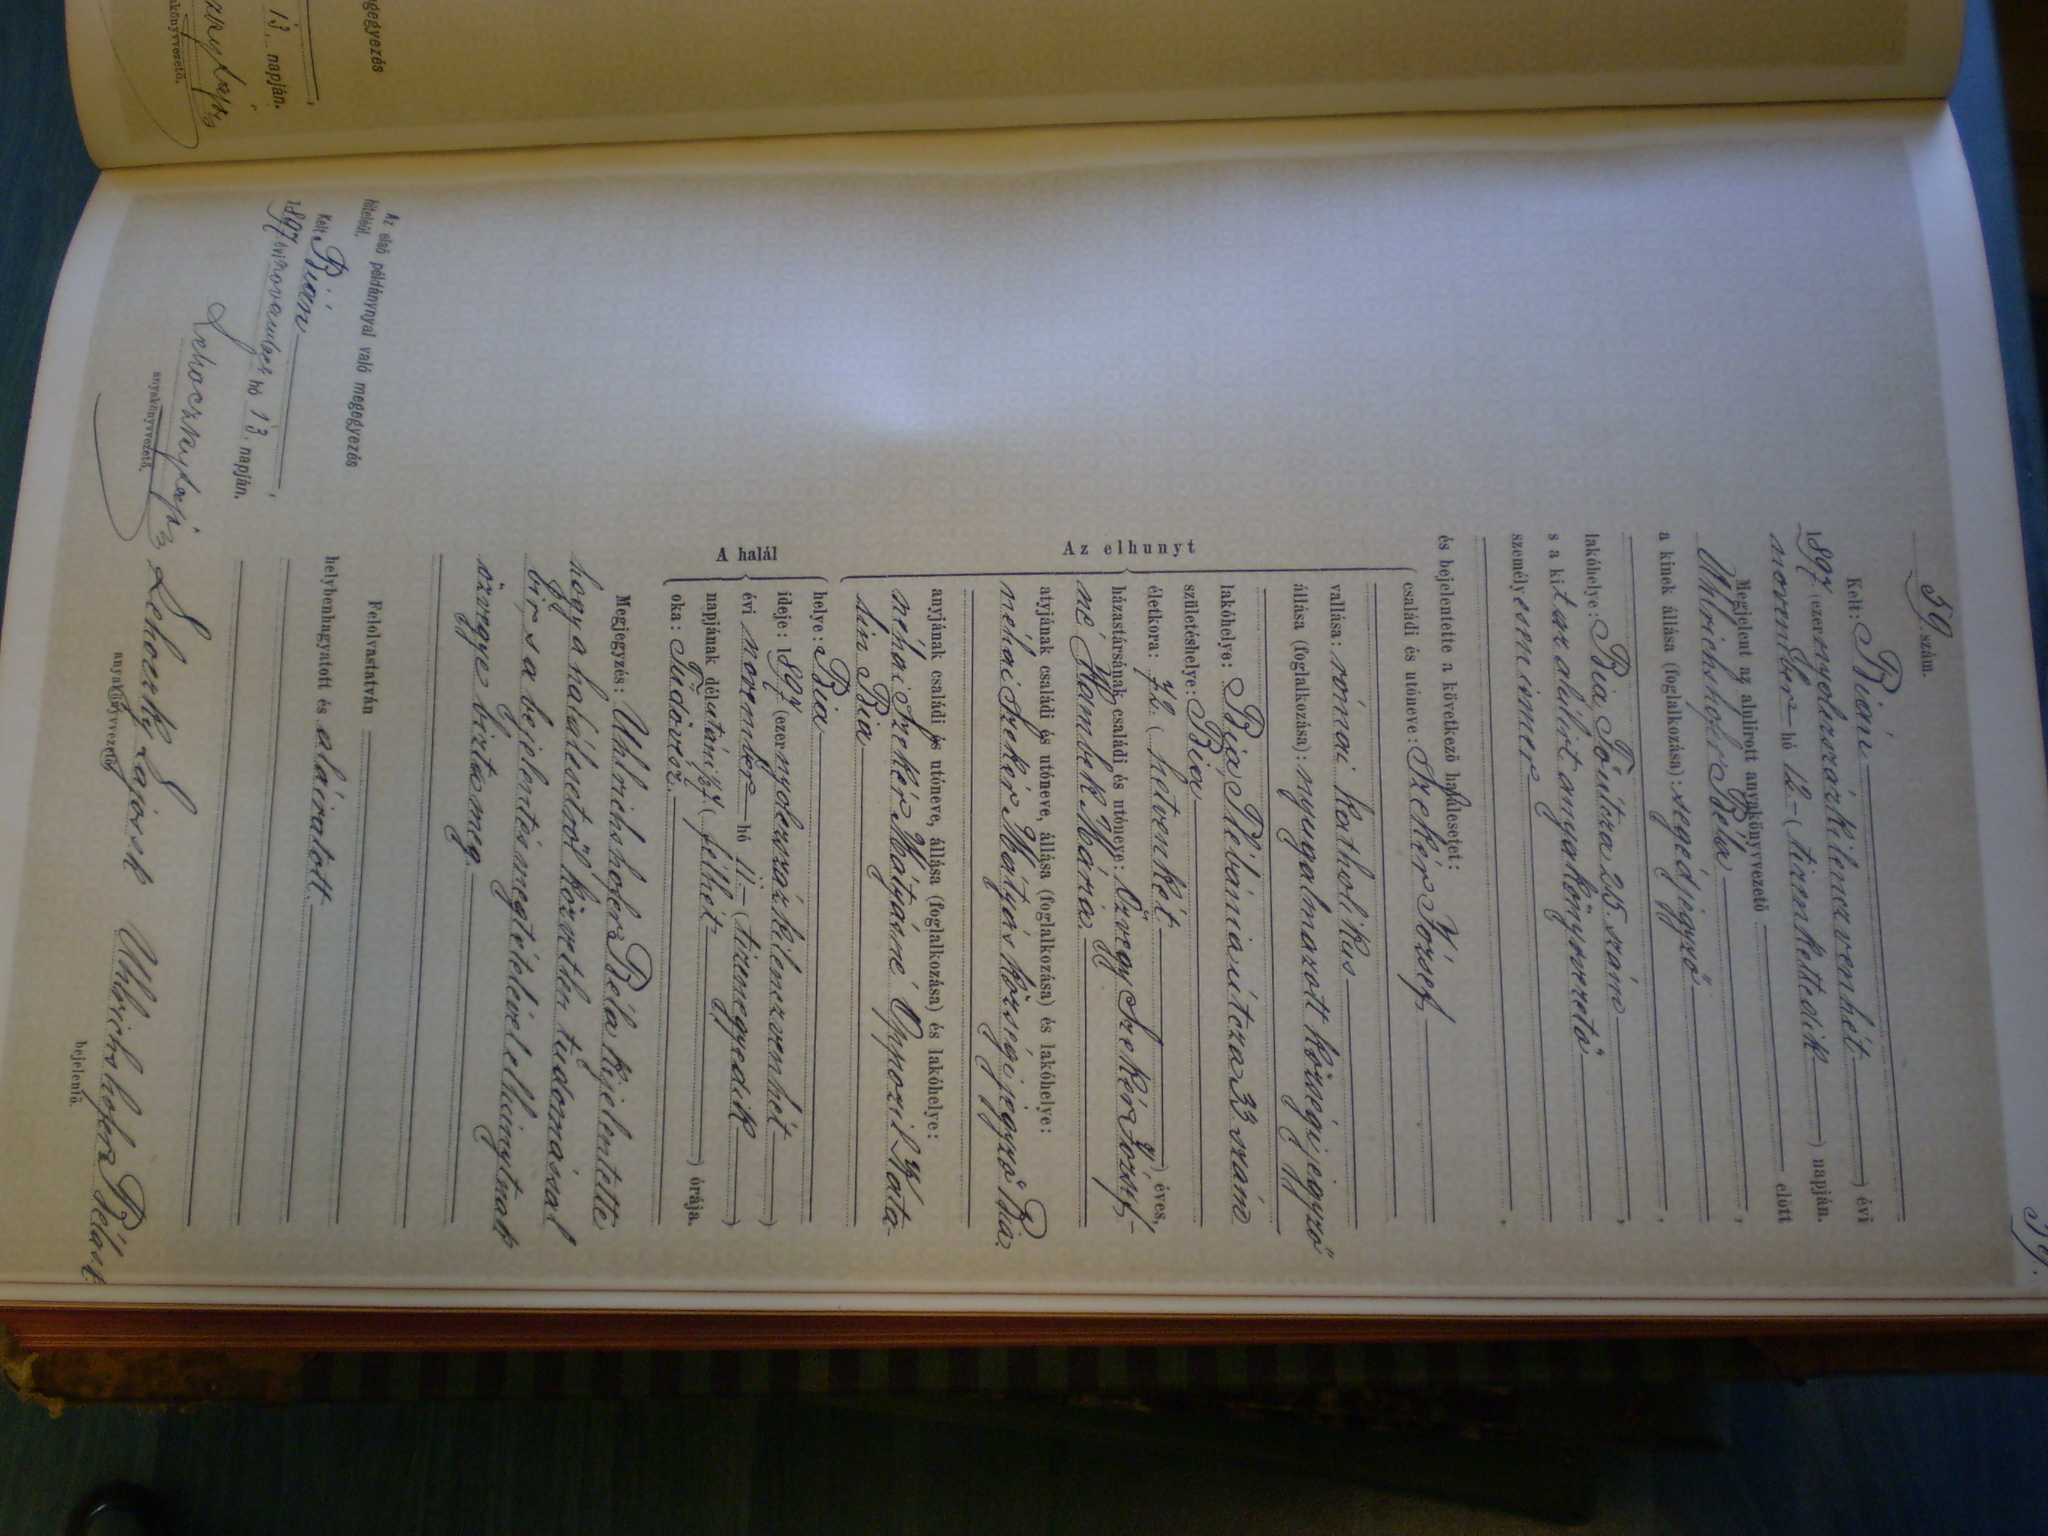 59.
59. szám.
Kelt: Bián
1897 (ezernyolczszázkilenczvenhét) évi
november hó 12 (tizenkettedik) napján.
Megjelent az alulirott anyakönyvvezető előtt
Uhlrichshofer Béla,
a kinek állása (foglalkozása): segédjegyző,
lakóhelye: Bia, Fóútcza 25. szám,
s a kit az alulirt anyakönyvvezető
személyesen ismer,
és bejelentette a következő halálesetet:
Az elhunyt
családi és utóneve: Szekér József
vallása: római katholikus
állása (foglalkozása): nyugalmazott községi jegyző
lakóhelye: Bia, Plébánia útcza 33 szám
születéshelye: Bia
életkora: 72. (hetvenkét) éves,
házastársának családi és utóneve: Özvegy Szekér József-
né Hambek Mária
atyjának családi és utóneve, állása (foglalkozása) és lakóhelye:
néhai Szekér Mátyás községi jegyző Bia
anyjának családi és utóneve, állása (foglalkozása) és lakóhelye:
néhai Szekér Mátyásné
Bia
A halál
helye: Bia
ideje: 1897 (ezernyolczszázkilenczvenhét)
évi november hó 11. (tizenegyedik)
napjának délutáni ½7 (félhét) órája.
oka: Tüdővész.
Megjegyzés: Uhlrichshofer Béla kijelentette
hogy a halálesetről közvetlen tudomással
bir s a bejelentés megtételével elhunytnak
özvegye bizta meg.
Felolvastatván
helybenhagyatott és aláiratott.
Lehoczky Lajos sk
anyakönyvvezető.
Uhlrichshofer Béla sk.
bejelentő.
Az első példánynyal való megegyezés
hiteléül.
Kelt Bián,
1897. évi november hó 13. napján.
Lehoczky Lajos
anyakönyvvezető.
megegyezés
13. napján.
anyakönyvvezető.